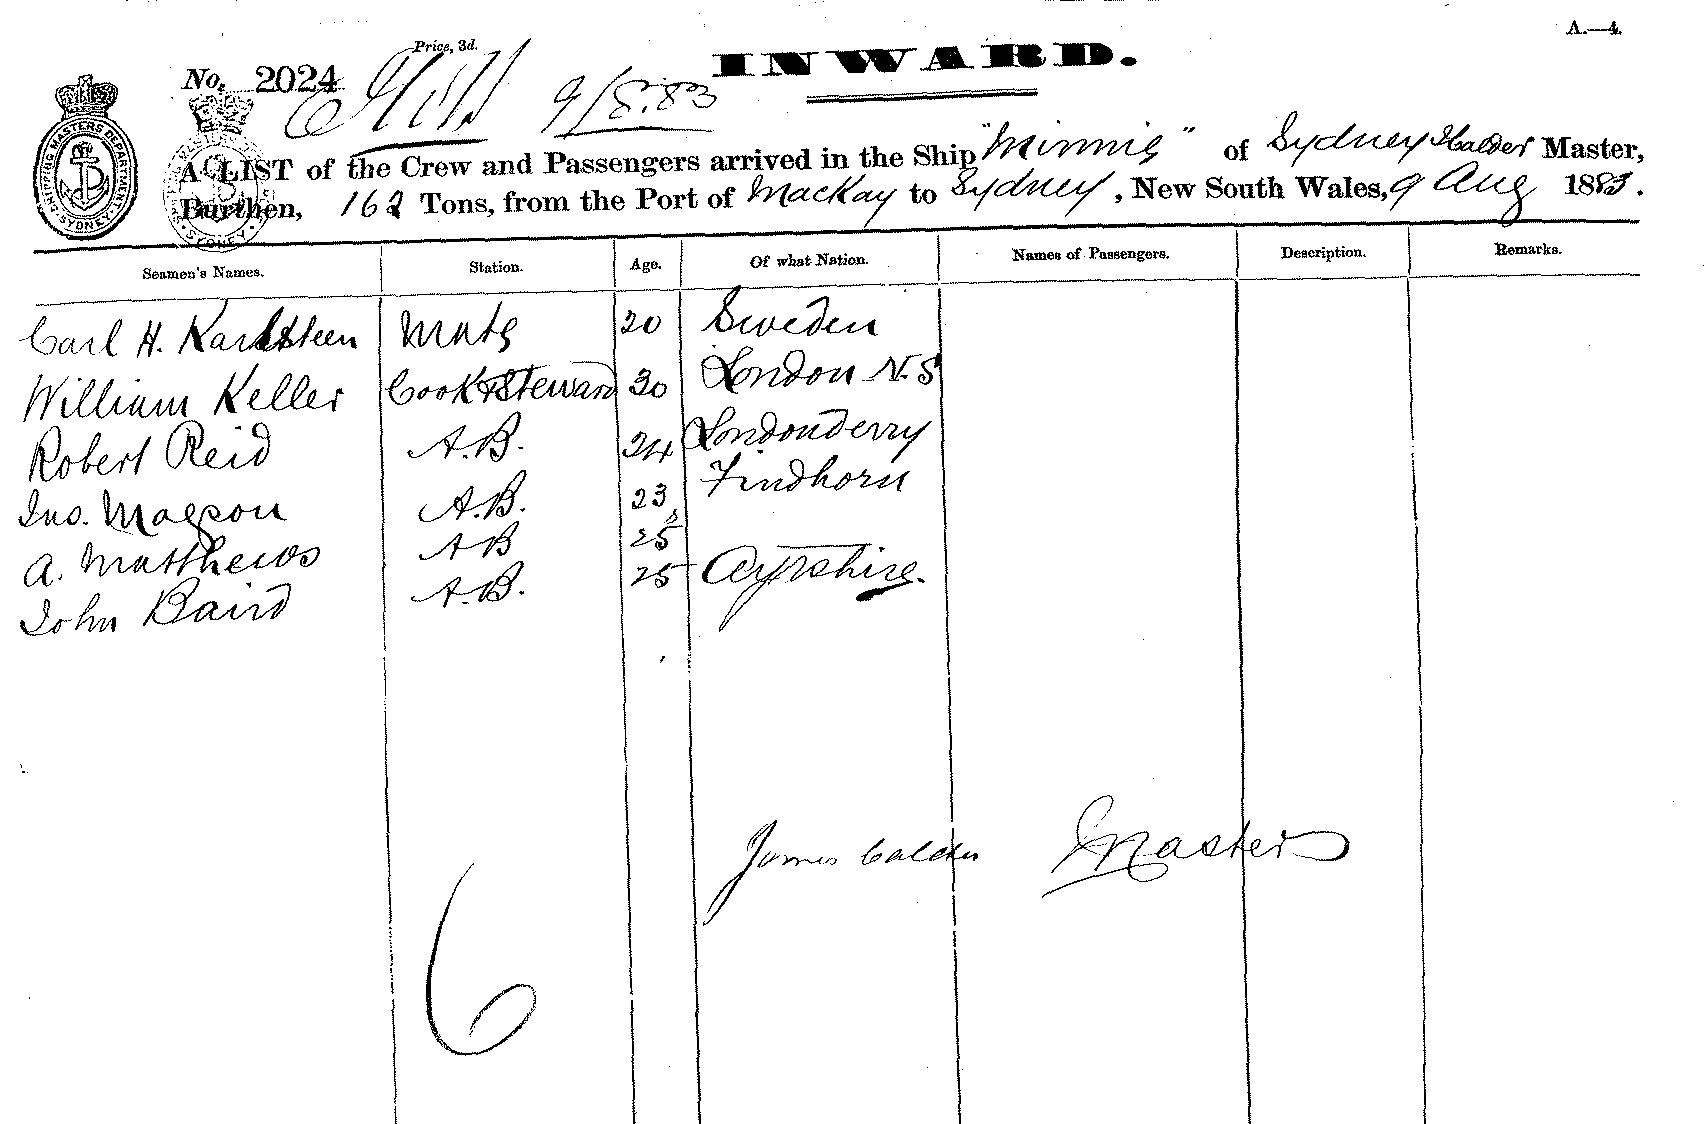 A.—4.
Price, 3d.
INWARD.
No. 2024
9/8.83
A LIST of the Crew and Passengers arrived in the Ship "Minnie" of Sydney Calder Master,
Burthen, 162 Tons, from the Port of Mackay to Sydney, New South Wales, 9 Aug 1883.
SHIPPING MASTERS DEPARTMENT SYDNEY
Seamen's Names. Station. Age. Of what Nation. Names of Passengers. Description. Remarks.
Carl H. Karlsteen Mate 20 Sweden
William Keller Cook & Steward 30 London N.S
Robert Reid A.B. 24 Londonderry
Jno. Magson A.B. 23 Findhorn
A. Matthews A B 25
John Baird A.B. 25 Ayrshire.
James Calder Master
6